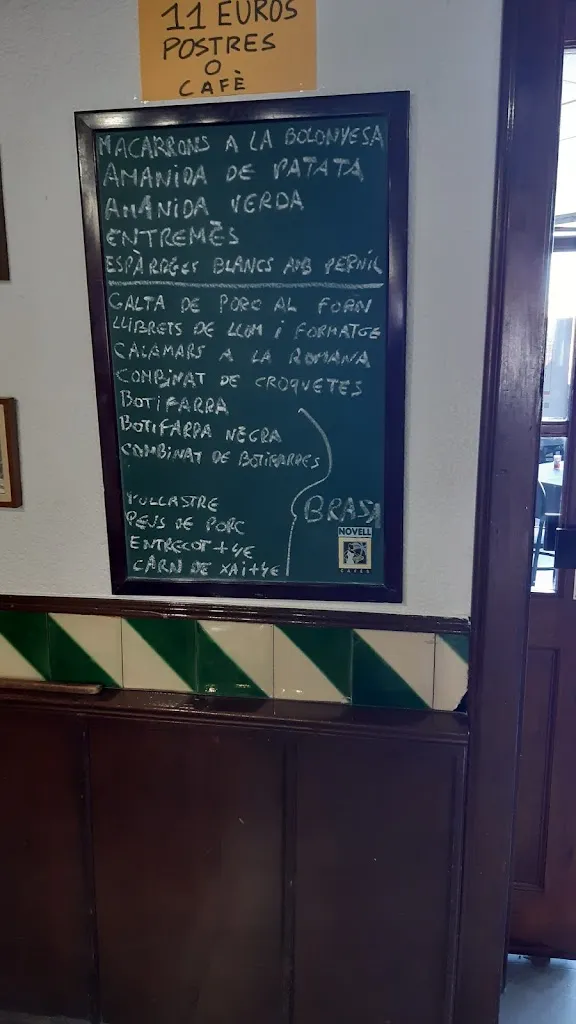 11 EUROS
POSTRES
O
CAFÈ
MACARRONS A LA BOLONYESA
AMANIDA DE PATATA
AMANIDA VERDA
ENTREMÈS
ESPÀRREGES BLANCS AMB PERNIL
GALTA DE PORC AL FORN
LLIBRETS DE LLOM I FORMATGE
CALAMARS A LA ROMANA
COMBINAT DE CROQUETES
BOTIFARRA
BOTIFARRA NEGRA
COMBINAT DE BOTIFARRES
POLLASTRE
PEUS DE PORC
ENTRECOT +4€
CARN DE XAI +4€
BRASA
NOVELL
CAFÈS